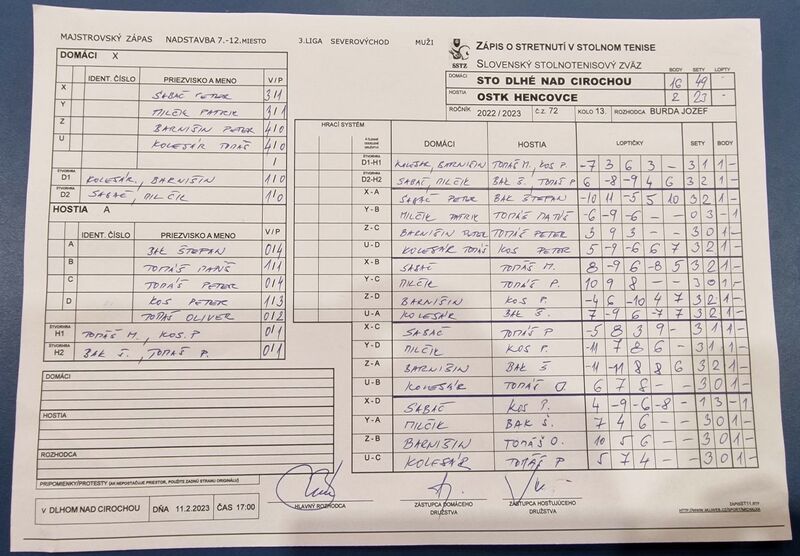 MAJSTROVSKÝ ZÁPAS NADSTAVBA 7.-12.MIESTO 3.LIGA SEVEROVÝCHOD MUŽI
SSTZ
ZÁPIS O STRETNUTÍ V STOLNOM TENISE
SLOVENSKÝ STOLNOTENISOVÝ ZVÄZ
BODY SETY LOPTY
DOMÁCI STO DLHÉ NAD CIROCHOU 16 49
HOSTIA OSTK HENCOVCE 2 23
ROČNÍK 2022 / 2023 Č.Z. 72 KOLO 13. ROZHODCA BURDA JOZEF
DOMÁCI X
IDENT. ČÍSLO PRIEZVISKO A MENO V/P
X SABAČ PETER 3/1
Y MILČIK PATRIK 3/1
Z BARNIŠIN PETER 4/0
U KOLESÁR TOMÁŠ 4/0
/
ŠTVORHRA D1 KOLESÁR, BARNIŠIN 1/0
ŠTVORHRA D2 SABAČ, MILČIK 1/0
HOSTIA A
IDENT. ČÍSLO PRIEZVISKO A MENO V/P
A BAK ŠTEPAN 0/4
B TOMÁŠ MATÚŠ 1/1
C TOMÁŠ PETER 0/4
D KOS PETER 1/3
TOMÁŠ OLIVER 0/2
ŠTVORHRA H1 TOMÁŠ M., KOS P 0/1
ŠTVORHRA H2 BAK Š., TOMÁŠ P. 0/1
DOMÁCI
HOSTIA
ROZHODCA
PRIPOMIENKY/PROTESTY (AK NEPOSTAČUJE PRIESTOR, POUŽITE ZADNÚ STRANU ORIGINÁLU)
HRACÍ SYSTÉM
DOMÁCI HOSTIA LOPTIČKY SETY BODY
ŠTVORHRA D1-H1 KOLESAR, BARNIŠIN TOMÁŠ M., KOS P. -7 3 6 3 - 3 1 1 -
ŠTVORHRA D2-H2 SABAČ, MILČIK BAK Š., TOMÁŠ P 6 -8 -9 4 6 3 2 1 -
X - A SABAČ PETER BAK ŠTEPAN -10 11 -5 5 10 3 2 1 -
Y - B MILČIK PATRIK TOMÁŠ MATÚŠ -6 -9 -6 - - 0 3 - 1
Z - C BARNIŠIN PETER TOMÁŠ PETER 3 9 3 - - 3 0 1 -
U - D KOLESÁR TOMÁŠ KOS PETER 5 -9 -6 6 7 3 2 1 -
X - B SABAČ TOMÁŠ M. 8 -9 6 -8 5 3 2 1 -
Y - C MILČIK TOMÁŠ P. 10 9 8 - - 3 0 1 -
Z - D BARNIŠIN KOS P. -4 6 -10 4 7 3 2 1 -
U - A KOLESÁR BAK Š. 7 -9 6 -7 7 3 2 1 -
X - C SABAČ TOMÁŠ P -5 8 3 9 - 3 1 1 -
Y - D MILČIK KOS P. -11 7 8 6 - 3 1 1 -
Z - A BARNIŠIN BAK Š -11 -11 8 8 6 3 2 1 -
U - B KOLESÁR TOMÁŠ O 6 7 8 - - 3 0 1 -
X - D SABAČ KOS P. 4 -9 -6 -8 - 1 3 - 1
Y - A MILČIK BAK Š. 7 4 6 - - 3 0 1 -
Z - B BARNIŠIN TOMÁŠ O. 10 5 6 - - 3 0 1 -
U - C KOLESÁR TOMÁŠ P 5 7 4 - - 3 0 1 -
V DLHOM NAD CIROCHOU DŇA 11.2.2023 ČAS 17:00
HLAVNÝ ROZHODCA
ZÁSTUPCA DOMÁCEHO DRUŽSTVA
ZÁSTUPCA HOSŤUJÚCEHO DRUŽSTVA